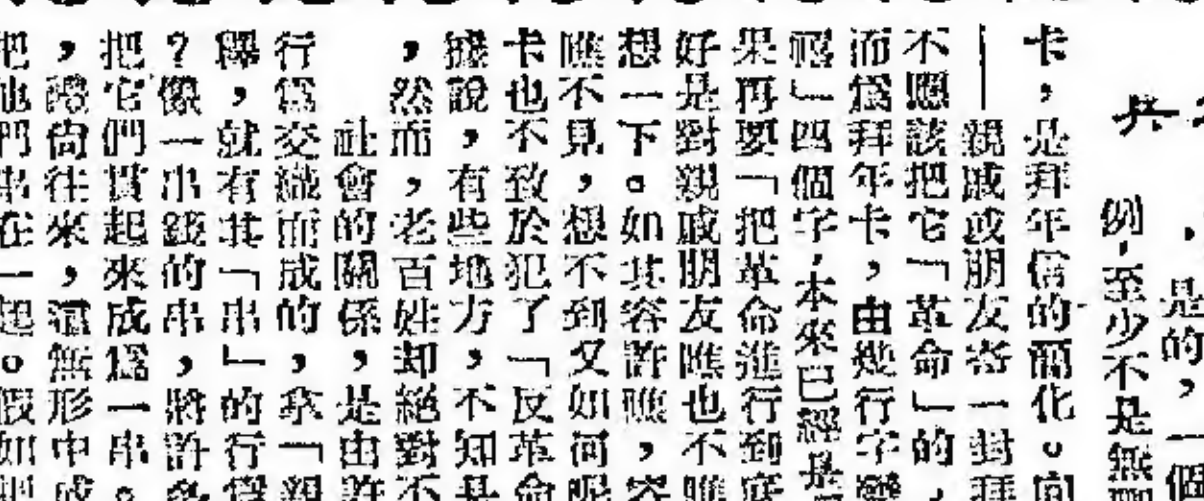 ，是的，一個
例，至少不是無
卡，是拜年信的簡化。向
——親戚或朋友寄一封拜
不應該把它「革命」的，
而爲拜年卡，由幾行字變
禧」四個字，本來已經是
果再要「把革命進行到底
好是對親戚朋友瞧也不瞧
想一下。如其容許瞧，容
瞧不見，想不到又如何呢
卡也不致於犯了「反革命
據說，有些地方，不知是
，然而，老百姓却絕對不
社會的關係，是由許
行爲交織而成的，拿「親
釋，就有其「串」的行爲
？像一串錢的串，將許多
把它們貫起來成爲一串。
，禮尚往來，這無形中成
把他們串在一起。假如把